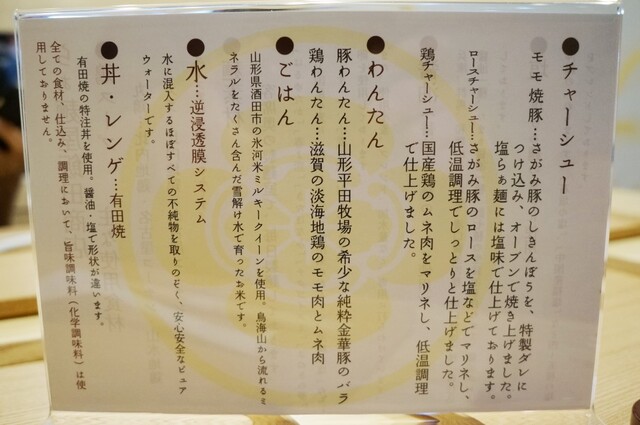 ●チャーシュー
モモ焼豚…さがみ豚のしきんぼうを、特製ダレに
つけ込み、オーブンで焼き上げました。
塩らぁ麺には塩味で仕上げております。
ロースチャーシュー…さがみ豚のロースを塩などでマリネし、
低温調理でしっとりと仕上げました。
鶏チャーシュー…国産鶏のムネ肉をマリネし、低温調理
で仕上げました。
●わんたん
豚わんたん…山形平田牧場の希少な純粋金華豚のバラ
鶏わんたん…滋賀の淡海地鶏のモモ肉とムネ肉
●ごはん
山形県酒田市の氷河米ミルキークイーンを使用。鳥海山から流れるミ
ネラルをたくさん含んだ雪解け水で育ったお米です。
●水…逆浸透膜システム
水に混入するほぼすべての不純物を取りのぞく、安心安全なピュア
ウォーターです。
●丼・レンゲ…有田焼
有田焼の特注丼を使用。醤油・塩で形状が違います。
全ての食材、仕込み、調理において、旨味調味料(化学調味料)は使
用しておりません。